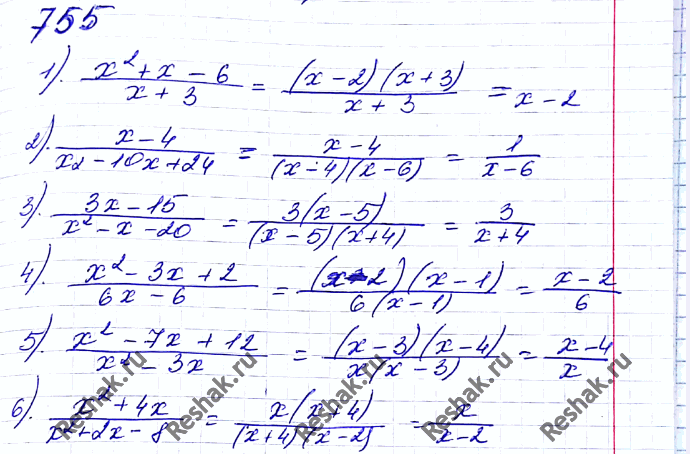 755
1). (x² + x - 6)/(x + 3) = ((x - 2)(x + 3))/(x + 3) = x - 2
2). (x - 4)/(x2 - 10x + 24) = (x - 4)/((x - 4)(x - 6)) = 1/(x - 6)
3). (3x - 15)/(x² - x - 20) = (3(x - 5))/((x - 5)(x + 4)) = 3/(x + 4)
4). (x² - 3x + 2)/(6x - 6) = ((x - 2)(x - 1))/(6(x - 1)) = (x - 2)/6
5). (x² - 7x + 12)/(x² - 3x) = ((x - 3)(x - 4))/(x(x - 3)) = (x - 4)/x
6). (x² + 4x)/(x² + 2x - 8) = (x(x + 4))/((x + 4)(x - 2)) = x/(x - 2)
Reshak.ru Reshak.ru Reshak.ru Reshak.ru Reshak.ru